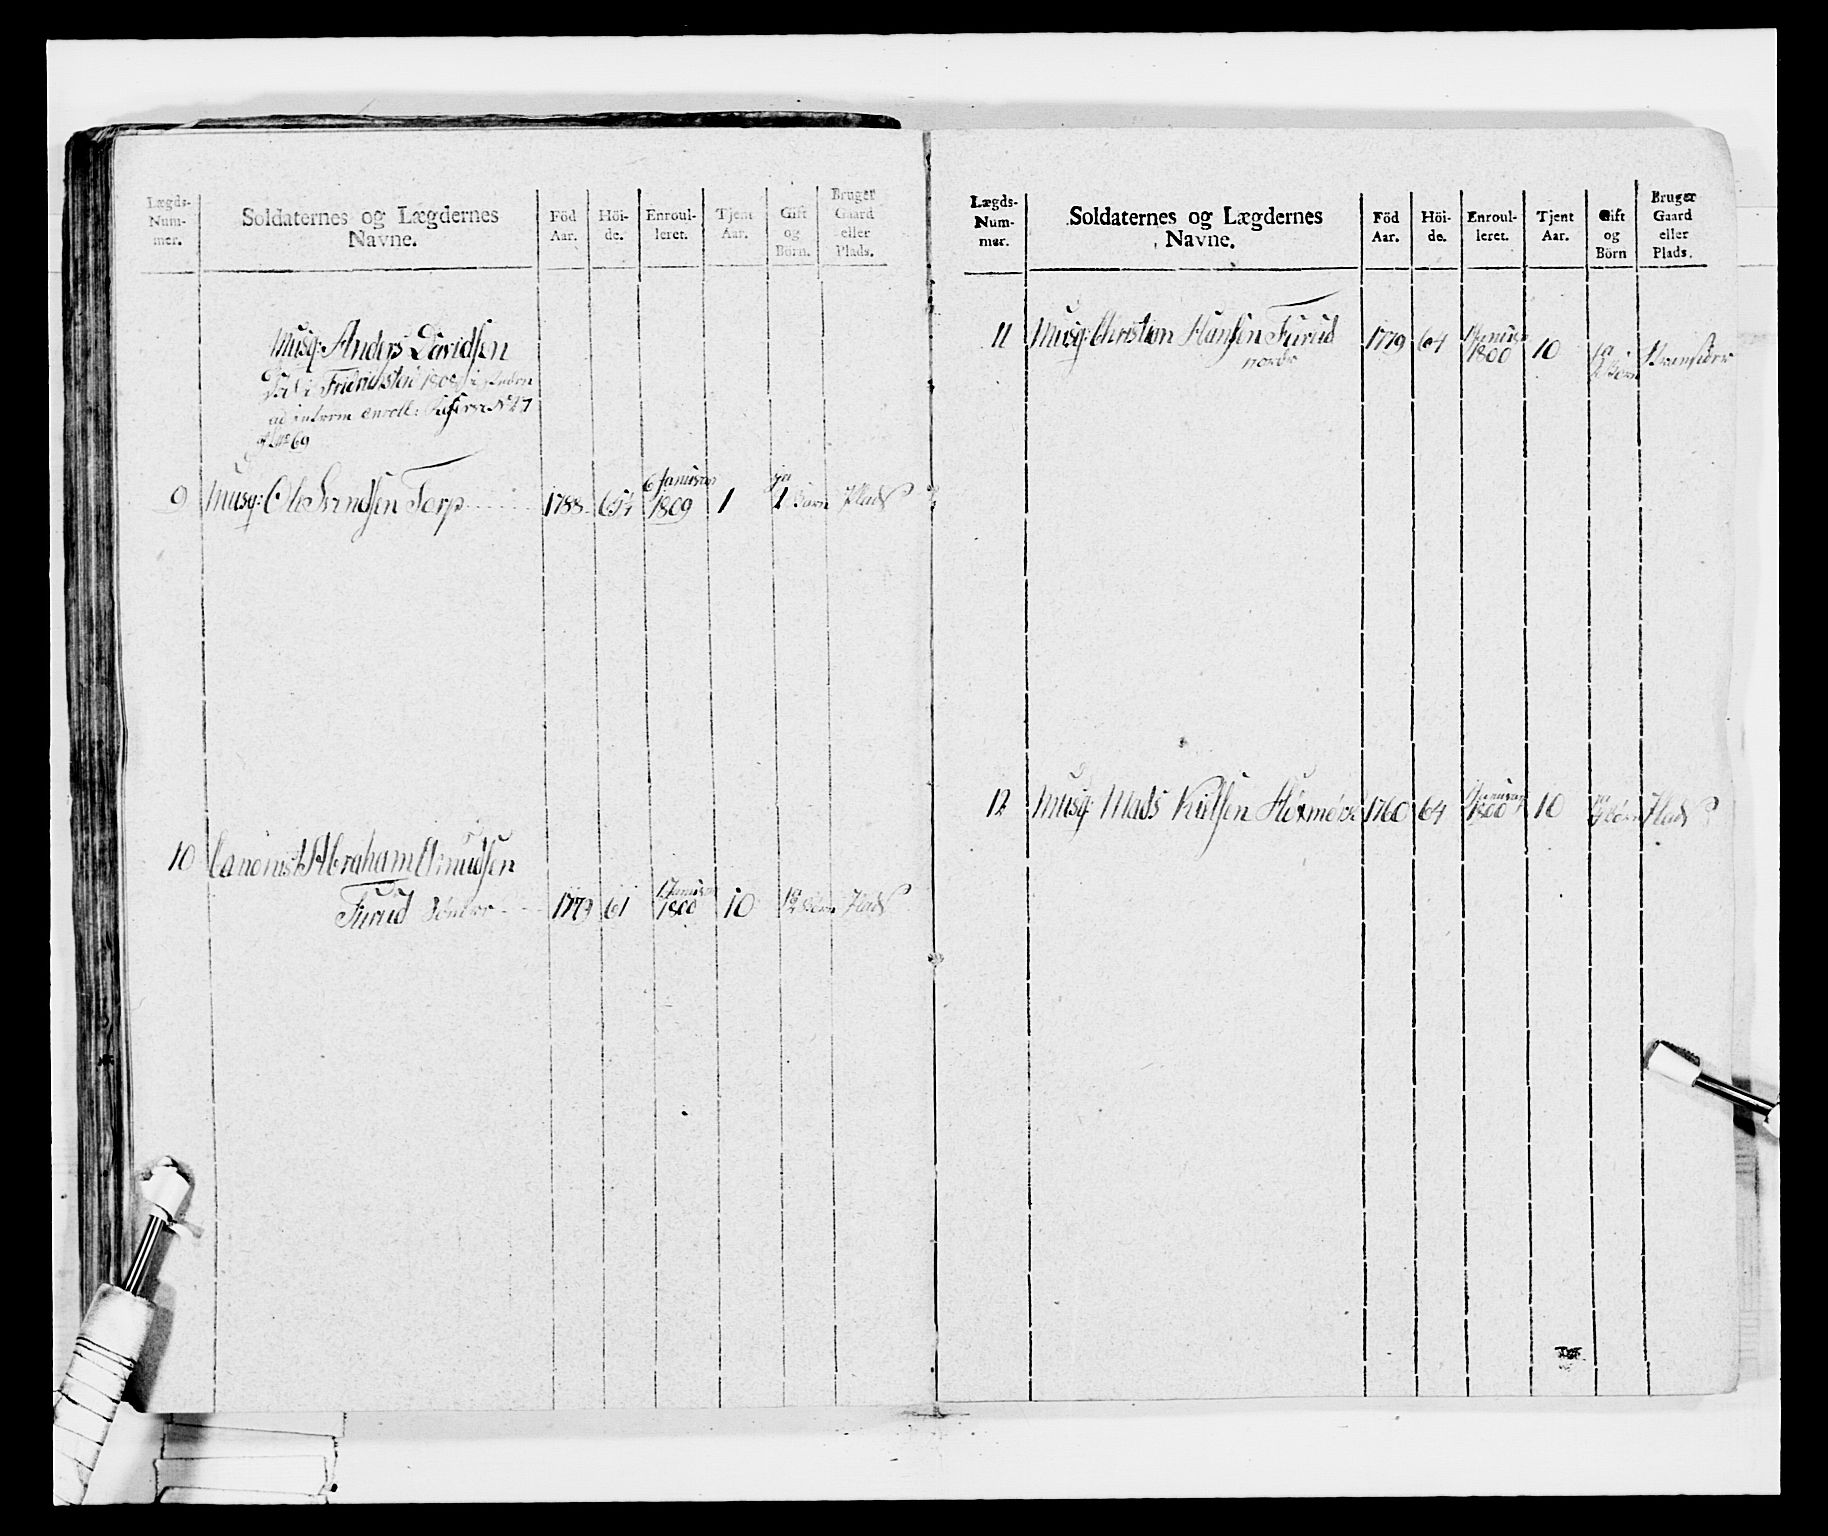 Lægds-
Num-
mer.
Soldaternes og Lægdernes
Navne.
Föd
Aar.
Höi-
de.
Enroul-
leret.
Tjent
Aar.
Gift
og
Börn.
Bruger
Gaard
eller
Plads.
Musq: Anders Davidsen
Fridrichstad 1808
ad interim enroll: No 27
69
9 Musq: Ole Svendsen Torp 1788 6 Januar 1809 1 ja 1 Barn Plads
10 Canonist Abraham Amundsen
Furud Söndre 1779 61 1 Januar 1800 10 ja Börn Plads
Lægds-
Num-
mer.
Soldaternes og Lægdernes
Navne.
Föd
Aar.
Höi-
de.
Enroul-
leret.
Tjent
Aar.
Gift
og
Börn
Bruger
Gaard
eller
Plads.
11 Musq: Christian Hansen Furud 1779 64 1 Januar 1800 10 ja Börn
nordre
12 Musq: Mads 1760 64 1 Januar 1800 10 ja Börn Plads